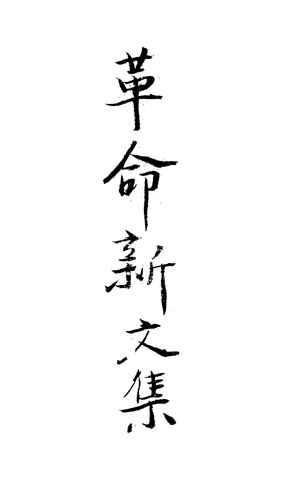 革命新文集